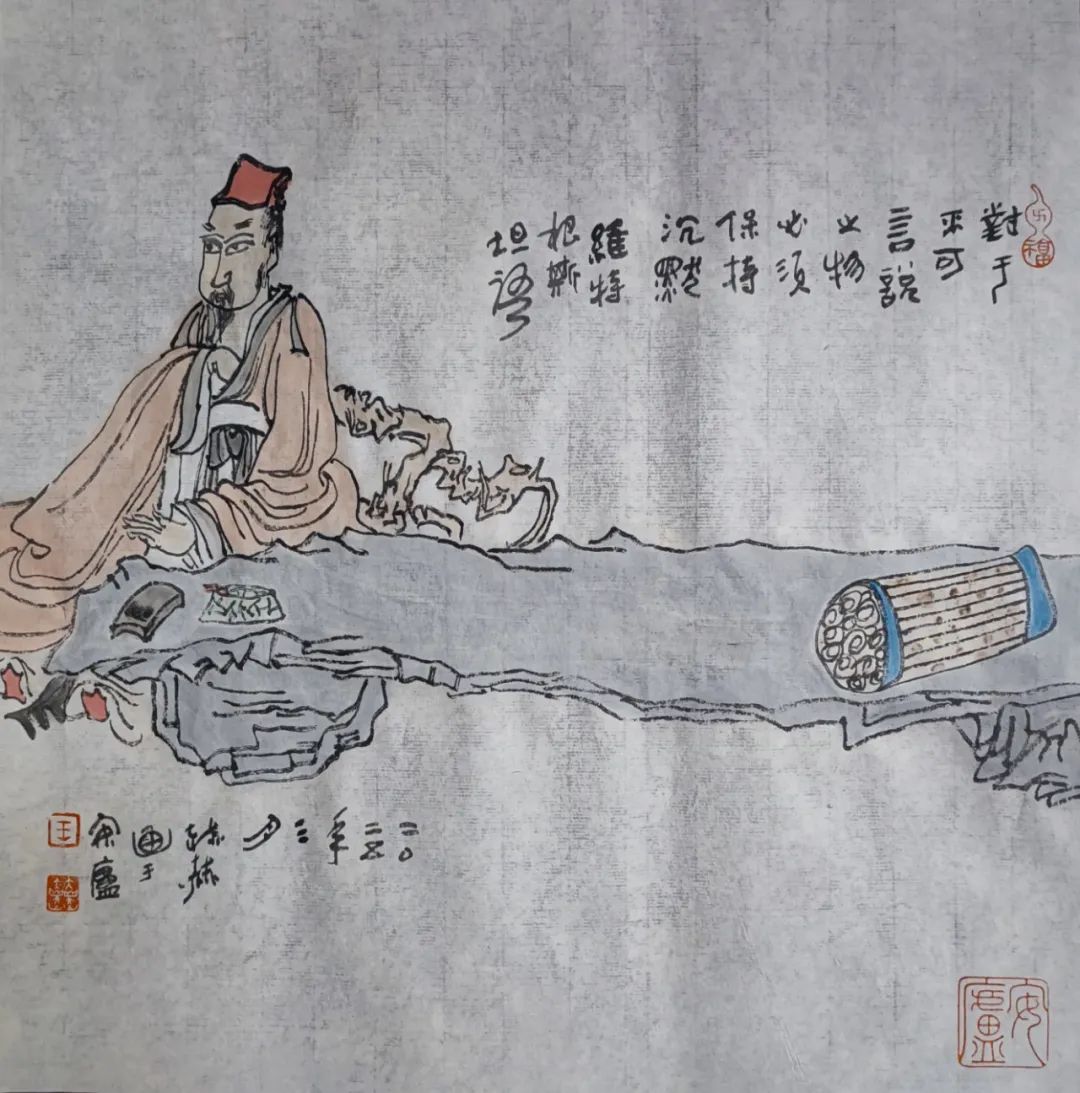 對于
不可
言說
之物
必须
保持
沉默
維特
根斯
坦語
二〇
二五
年
三
月
画于
安廬
王
安廬